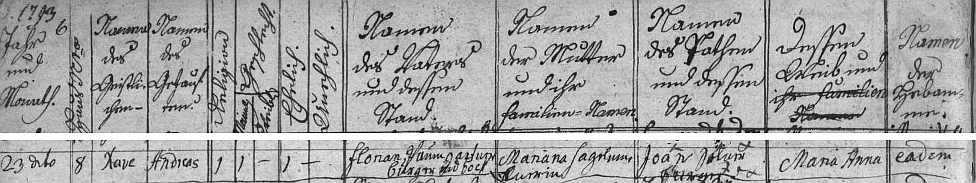 1793
Jahr
und
Monath.
Haus Nro
Namen
des
Geistli-
chen-
Namen
des
Getauf-
ten.
Religion
Ehelich.
Unehlich.
Namen
des Vaters
und dessen
Stand.
Namen
der Mutter
und ihr
familien-Namen.
Namen
des Pathen
und dessen
Stand.
Dessen
Weib und
ihr familien
Namen
Namen
der
Hebam-
me.
23 dito 8 Xave Andreas 1 1 - 1 - Florian
burger und
Mariana
Joan
Maria Anna eadem